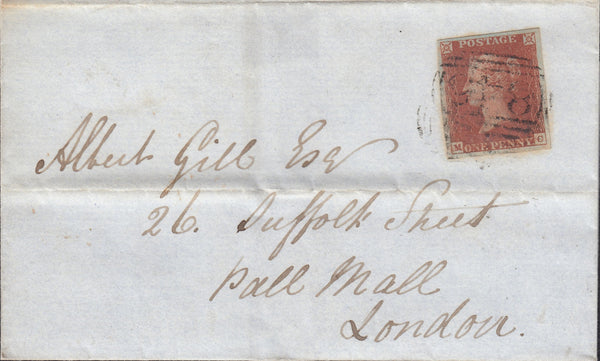 POSTAGE
M G
ONE PENNY
Albert Gill Esq
26. Suffolk Street
Pall Mall
London.